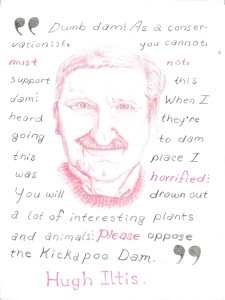 " Dumb dam: As a conser-
vationist, you cannot,
must not,
support this
dam: When I
heard they're
going to dam
this place I
was horrified:
You will drown out
a lot of interesting plants
and animals: please oppose
the Kickapoo Dam. "
Hugh Iltis.